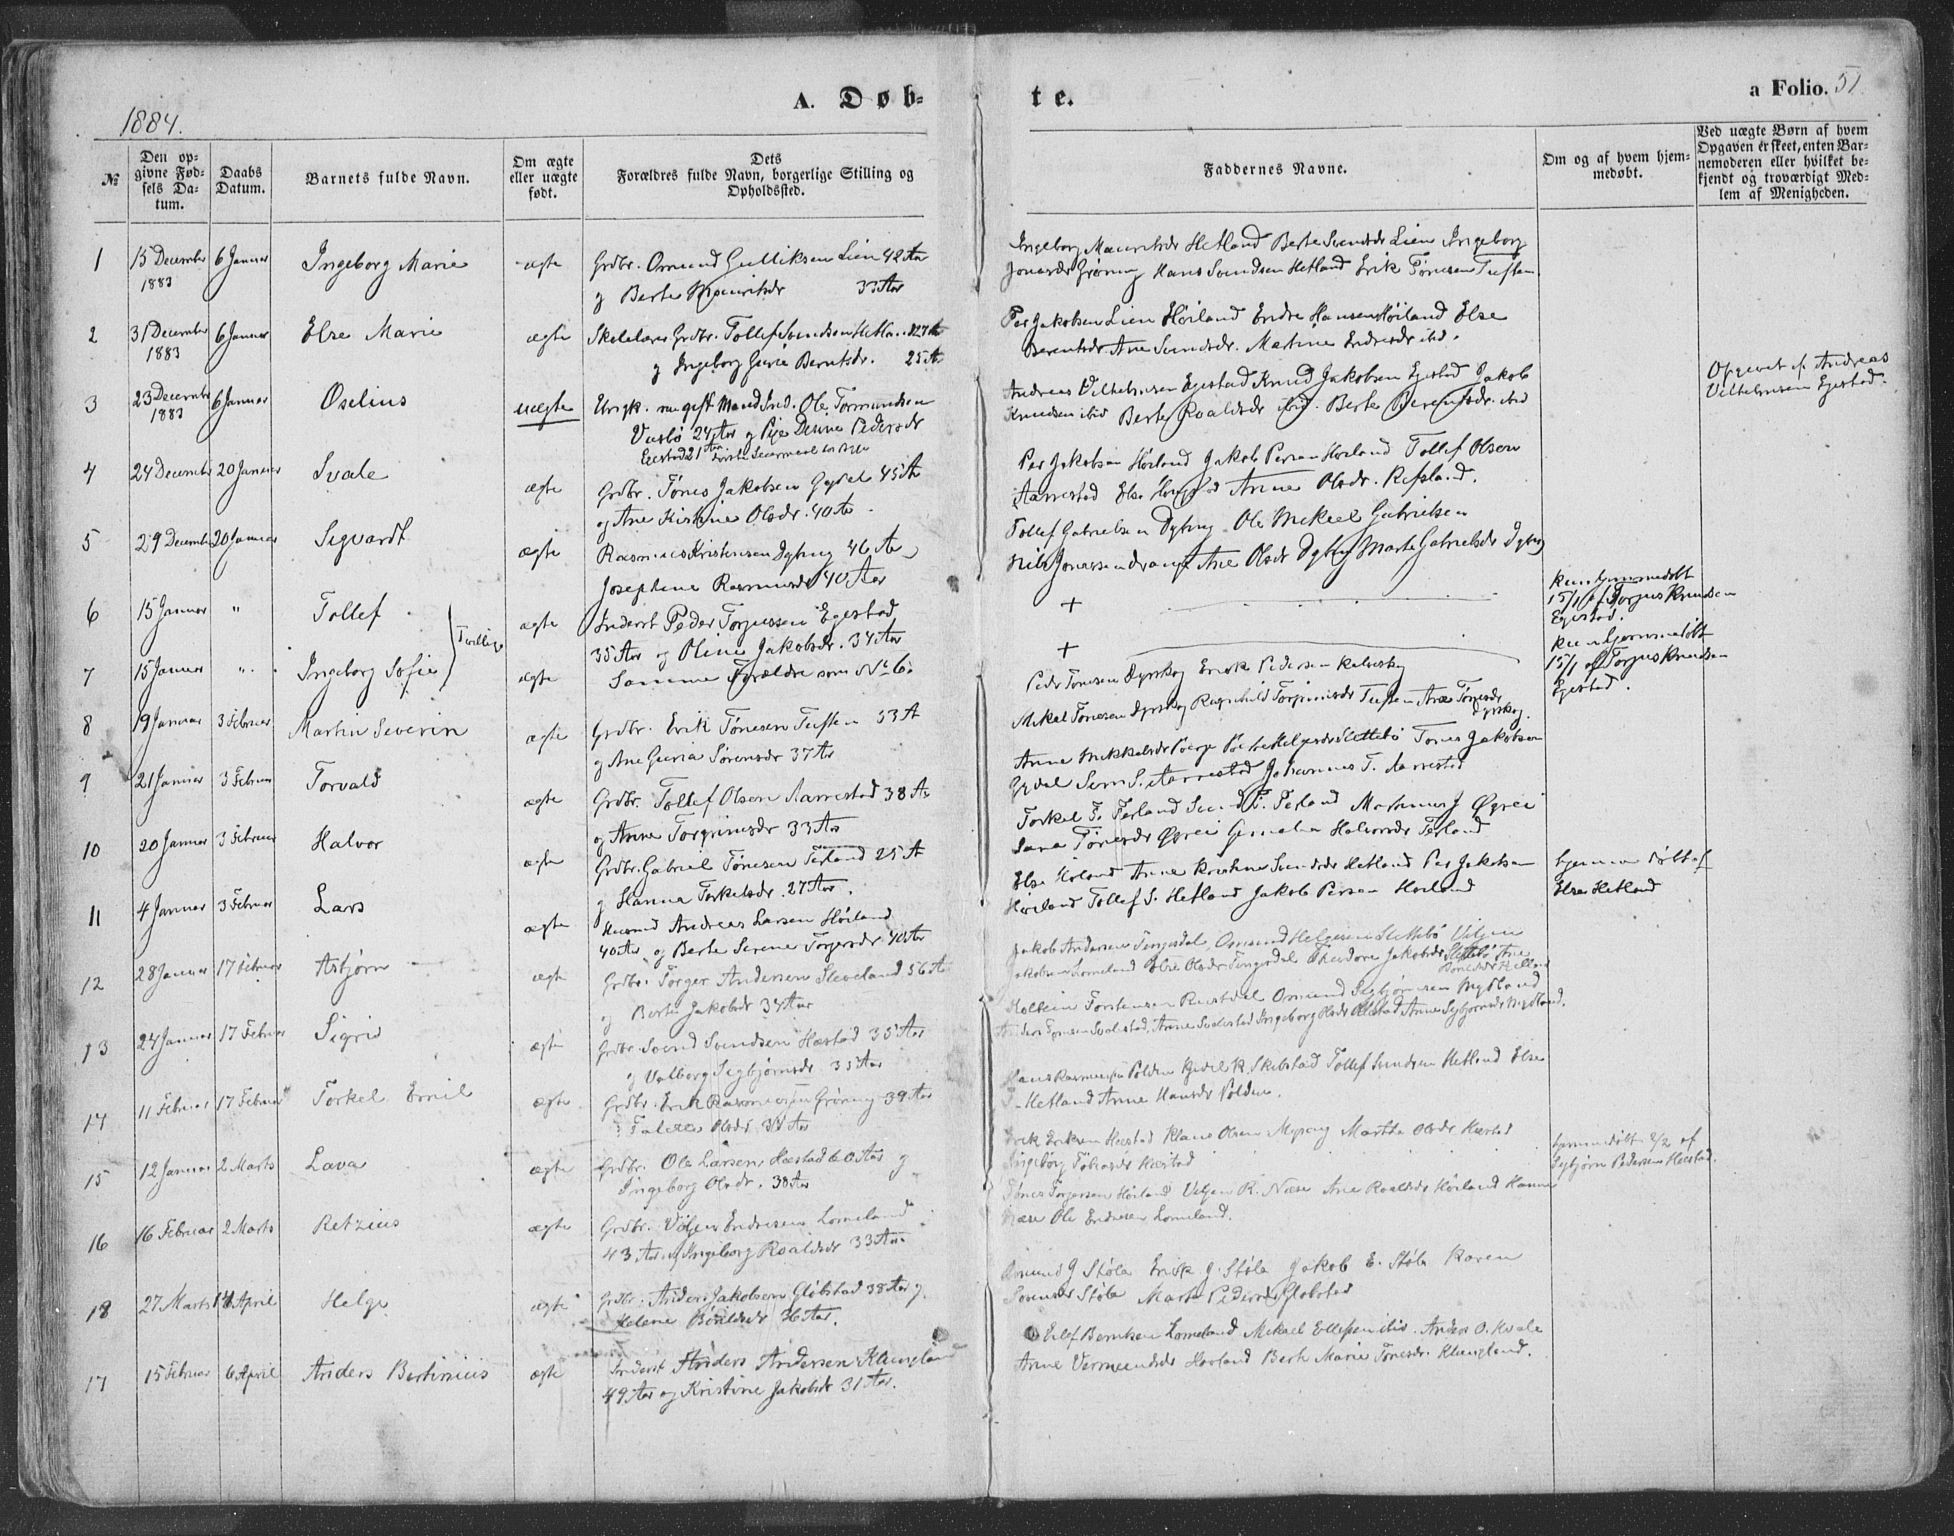 A. Døb-
te.
a Folio. 51.
1884.
№
Den op-
givne Fød-
sels Da-
tum.
Daabs
Datum.
Barnets fulde Navn.
Om ægte
eller uægte
født.
Dets
Forældres fulde Navn, borgerlige Stilling og
Opholdssted.
Faddernes Navne.
Om og af hvem hjem-
medøbt.
Ved uægte Børn af hvem
Opgaven er skeet, enten Bar-
nemoderen eller hvilket be-
kjendt og troværdigt Med-
lem af Menigheden.
1 15 December 6 Januar Ingeborg Marie ægte Grdbr. Omund Gulliksen Lien 42 Aar
1883 og Berte Mauritsdr 33 Aar
Ingeborg Mauritsdr Hetland Berte Svendsdr Lien Ingeborg
Jonasdr Grøning Hans Svendsen Hetland Erik Tønesen Tuften
2 31 December 6 Januar Else Marie ægte Skolelærer Grdbr. Tollef Svendsen Hetland 27 Aar
1883 og Ingeborg Gurie Berntsdr. 25 A
Per Jakobsen Lien Høiland Endre Hansen Høiland Else
Berentsdr Ane Svendsdr. Martine Endresdr ibd.
3 23 December 6 Januar Oselius uægte Ungk. Ole Tormundsen
1883 24 Aar og Pige Pedersdr
Egestad 21 Aar
Andreas Vilhelmsen Egestad Knud Jakobsen Egestad Jakob
Knudsen ibid Berte Roaldsdr ibid. Berte Berentsdr. ibid
Opgivet af Andreas
Vilhelmsen Egestad.
4 24 December 20 Januar Svale ægte Grdbr. Tønes Jakobsen Gydal 45 A
og Ane Kirstine Olsdr. 40 Aar.
Per Jakobsen Høiland Jakob Persen Høiland Tollef Olsen
Aarrestad Else Anne Olsdr. Refsland.
5 29 December 20 Januar Sigvardt ægte Rasmus Kristensen Dybing 46 Aar
Josephine Rasmusdr 40 Aar
Tollef Gabrielsen Dybing Ole Mikael Gabrielsen
Nils Jonassen Ane Olsdr Dybing Marte Gabrielsdr Dybing
6 15 Januar " Tollef ægte Inderst Peder Torjussen Egestad
Tvillinge
35 Aar og Oline Jakobsdr. 34 Aar
+
Kun hjemmedøbt
15/1 af Torjus Knudsen
Egestad.
7 15 Januar " Ingeborg Sofie ægte Samme Forældre som No 6.
+
Kun hjemmedøbt
15/1 af Torjus Knudsen
Egestad.
8 19 Januar 3 Februar Martin Severin ægte Grdbr. Erik Tønesen Tuften 33 A
og Ane Guria Sørensdr 37 Aar
Peder Tonesen Dyrskog Enok Pedersen
Mikal Tonesen Dyrskog Ragnhild Torgrimsdr Tuften Ane Tønesdr
Dyrskog.
9 21 Januar 3 Februar Torvald ægte Grdbr. Tollef Olsen Aarrestad 38 Aar
og Anne Torgrimsdr 33 Aar
Anne Mikkelsdr Slettebø Tønes Jakobsen
Gydal Aarrestad Johannes T. Aarrestad
10 20 Januar 3 Februar Halvor ægte Grdbr. Gabriel Tønesen Terland 25 A
og Hanna Torkelsdr. 27 Aar.
Torkel T. Terland Svend T. Terland J Øgrei
Tønesdr Øgrei Halvorsdr Terland
11 4 Januar 3 Februar Lars ægte Husmd Andreas Larsen Høiland
40 Aar og Berte Serene Torgersdr 40 Aar
Else Høiland Anne Kristine Svendsdr Hetland Per Jakobsen
Høiland Tollef S. Hetland Jakob Persen Høiland
hjemmedøbt af
Else Hetland
12 28 Januar 17 Februar Asbjørn ægte Grdbr. Torger Andersen Sleveland 56 Aar
og Berte Jakobsdr 34 Aar
Jakob Andersen Tengesdal, Omund Helgesen Slettebø Viljen
Jakobsen Lomeland Else Olsdr Tengesdal Theodore Jakobsdr Slettebø Ane
13 24 Januar 17 Februar Sigrid ægte Grdbr. Svend Svendsen Hæstad 35 Aar
og Valborg Segbjørnsdr 35 Aar
Torstensen Omund Segbjørnsen Mydland
Anne Ingeborg Olsdr Anne Segbjørnsdr Mydland.
14 11 Februar 17 Februar Torkel Emil ægte Grdbr. Erik Rasmussen Grøning 39 Aar
Olsdr 34 Aar
Hans Rasmussen Polden R. Skibstad Tollef Svendsen Hetland Else
T. Hetland Anne Hansdr Polden.
15 12 Januar 2 Marts Lava ægte Grdbr. Ole Larsen Hæstad 60 Aar og
Ingeborg Olsdr. 38 Aar
Erik Eriksen Hæstad Klaus Olsen Marthe Olsdr Hæstad
Ingeborg Hæstad
hjemmedøbt 2/2 af
Segbjørn Pedersen Hæstad.
16 16 Februar 2 Marts Retzius ægte Grdbr. Viljen Endresen Lomeland
43 Aar og Ingeborg Roaldsdr 33 Aar.
Tønes Torgersen Høiland Viljen R. Næse Ane Roaldsdr Høiland Hanne
Næse Ole Endresen Lomeland.
18 27 Marts 14 April Helge ægte Grdbr. Anders Jakobsen Gløbstad 38 Aar og
Helene Roaldsdr 36 Aar.
Omund G Støle Erik G. Støle Jakob E. Støle Karen
Sørensdr Støle Marte Pedersdr Gløbstad
17 15 Februar 6 April Anders Bertinius ægte Inderst Anders Andersen Klungland
49 Aar og Kristine Jakobsdr 31 Aar.
Eilef Berntsen Lomeland Mikael Ellefsen ibid. Anders O. Kvale
Anne Vermundsdr Høiland Berte Marie Tønesdr. Klungland.